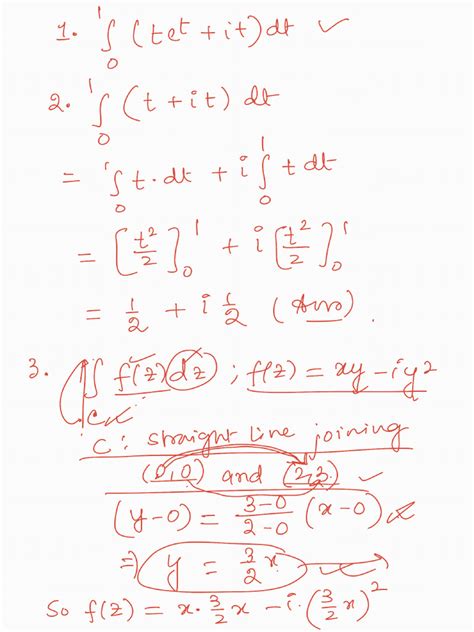 1. ∫₀¹ (te^t + it) dt ✓
2. ∫₀¹ (t + it) dt
= ∫₀¹ t · dt + i ∫₀¹ t dt
= [t²/2]₀¹ + i [t²/2]₀¹
= 1/2 + i 1/2 (Ans).
3. ∫_C f(z) dz ; f(z) = xy - iy²
C: straight line joining
(0,0) and (2,3) ✓
(y-0) = (3-0)/(2-0) (x-0)
⇒ y = 3/2 x
So f(z) = x · 3/2 x - i · (3/2 x)²